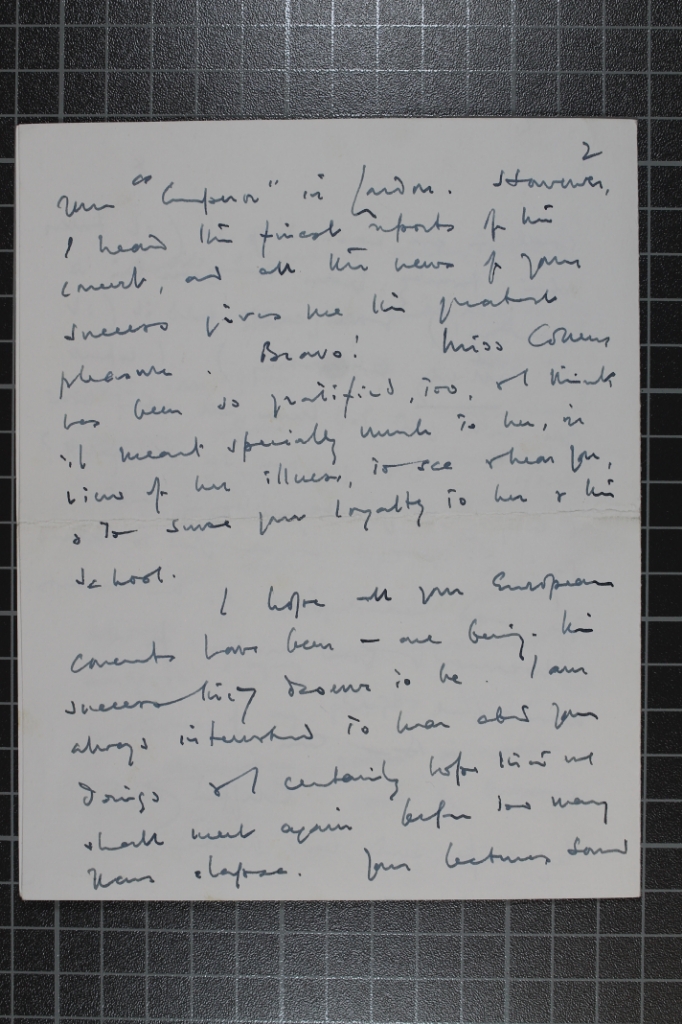 2
your "Emperor" in London. However,
I heard the finest reports of the
concert, and all the news of your
success gives me the greatest
pleasure. Bravo! Miss Cohen
has been so gratified, too, & I think
it meant specially much to her, in
view of her illness, to see & hear you,
& to sense your loyalty to her & the
school.
I hope all your European
concerts have been – are being – the
success they deserve to be. I am
always interested to hear about your
doings & I certainly hope that we
shall meet again before too many
years elapse. Your lectures sound